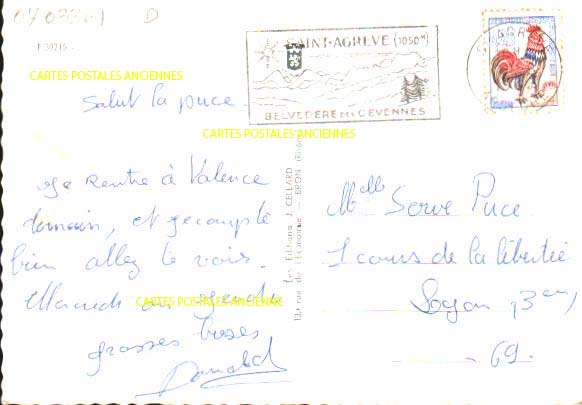 070330-1 D
F 30215 -
CARTES POSTALES ANCIENNES
SAINT-AGREVE (1050M)
BELVEDERE DES CEVENNES
Salut la puce
CARTES POSTALES ANCIENNES
Je Rentre à Valence
demain, et je compte
bien allez te voir.
CARTES POSTALES ANCIENNE
grosses bises
Donald
Les Editions J. CELLARD
13, rue de l'Economie - BRON (Rhône)
Melle Serve Puce
1 cours de la libertié
Lyon 3em
- 69.